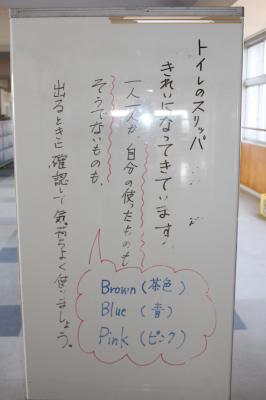 トイレのスリッパ
きれいになってきています。
一人一人が、自分の使ったものも
そうでないものも、
出るときに確認して気持ちよく使いましょう。
Brown (茶色)
Blue (青)
Pink (ピンク)